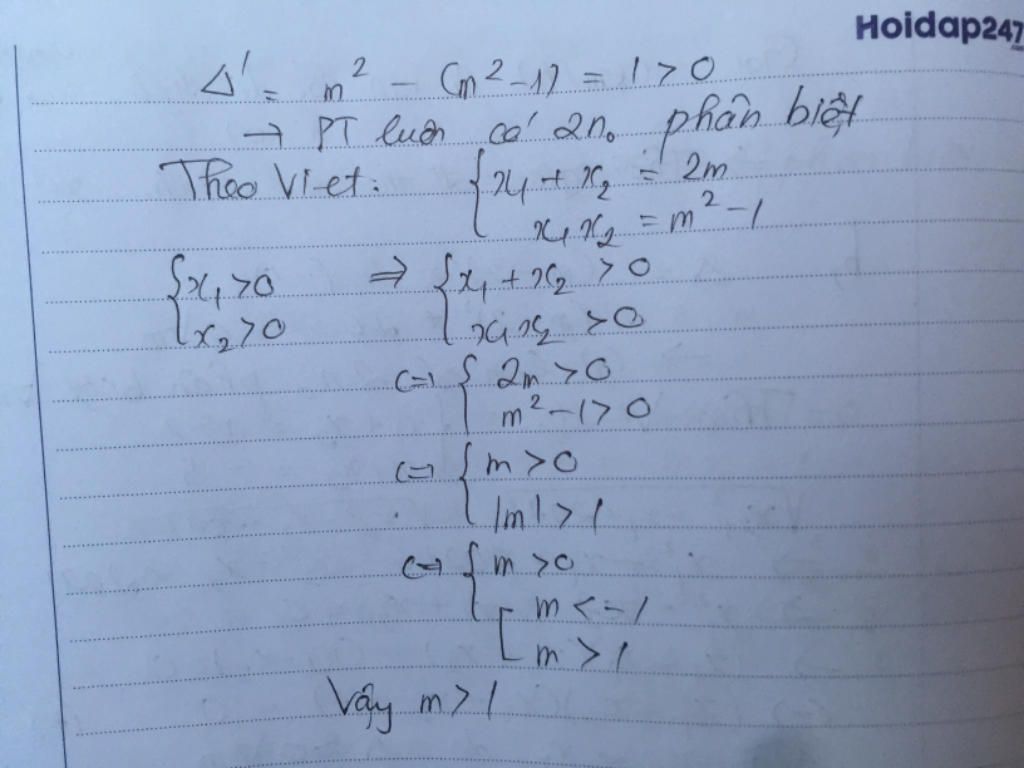 Hoidap247
Δ' = m² - (m² - 1) = 1 > 0
→ PT luôn có 2n₀ phân biệt
Theo Viet: { x₁ + x₂ = 2m
x₁x₂ = m² - 1
{ x₁ > 0 ⇒ { x₁ + x₂ > 0
x₂ > 0 x₁x₂ > 0
<=> { 2m > 0
m² - 1 > 0
<=> { m > 0
|m| > 1
<=> { m > 0
[ m < -1
m > 1
Vậy m > 1